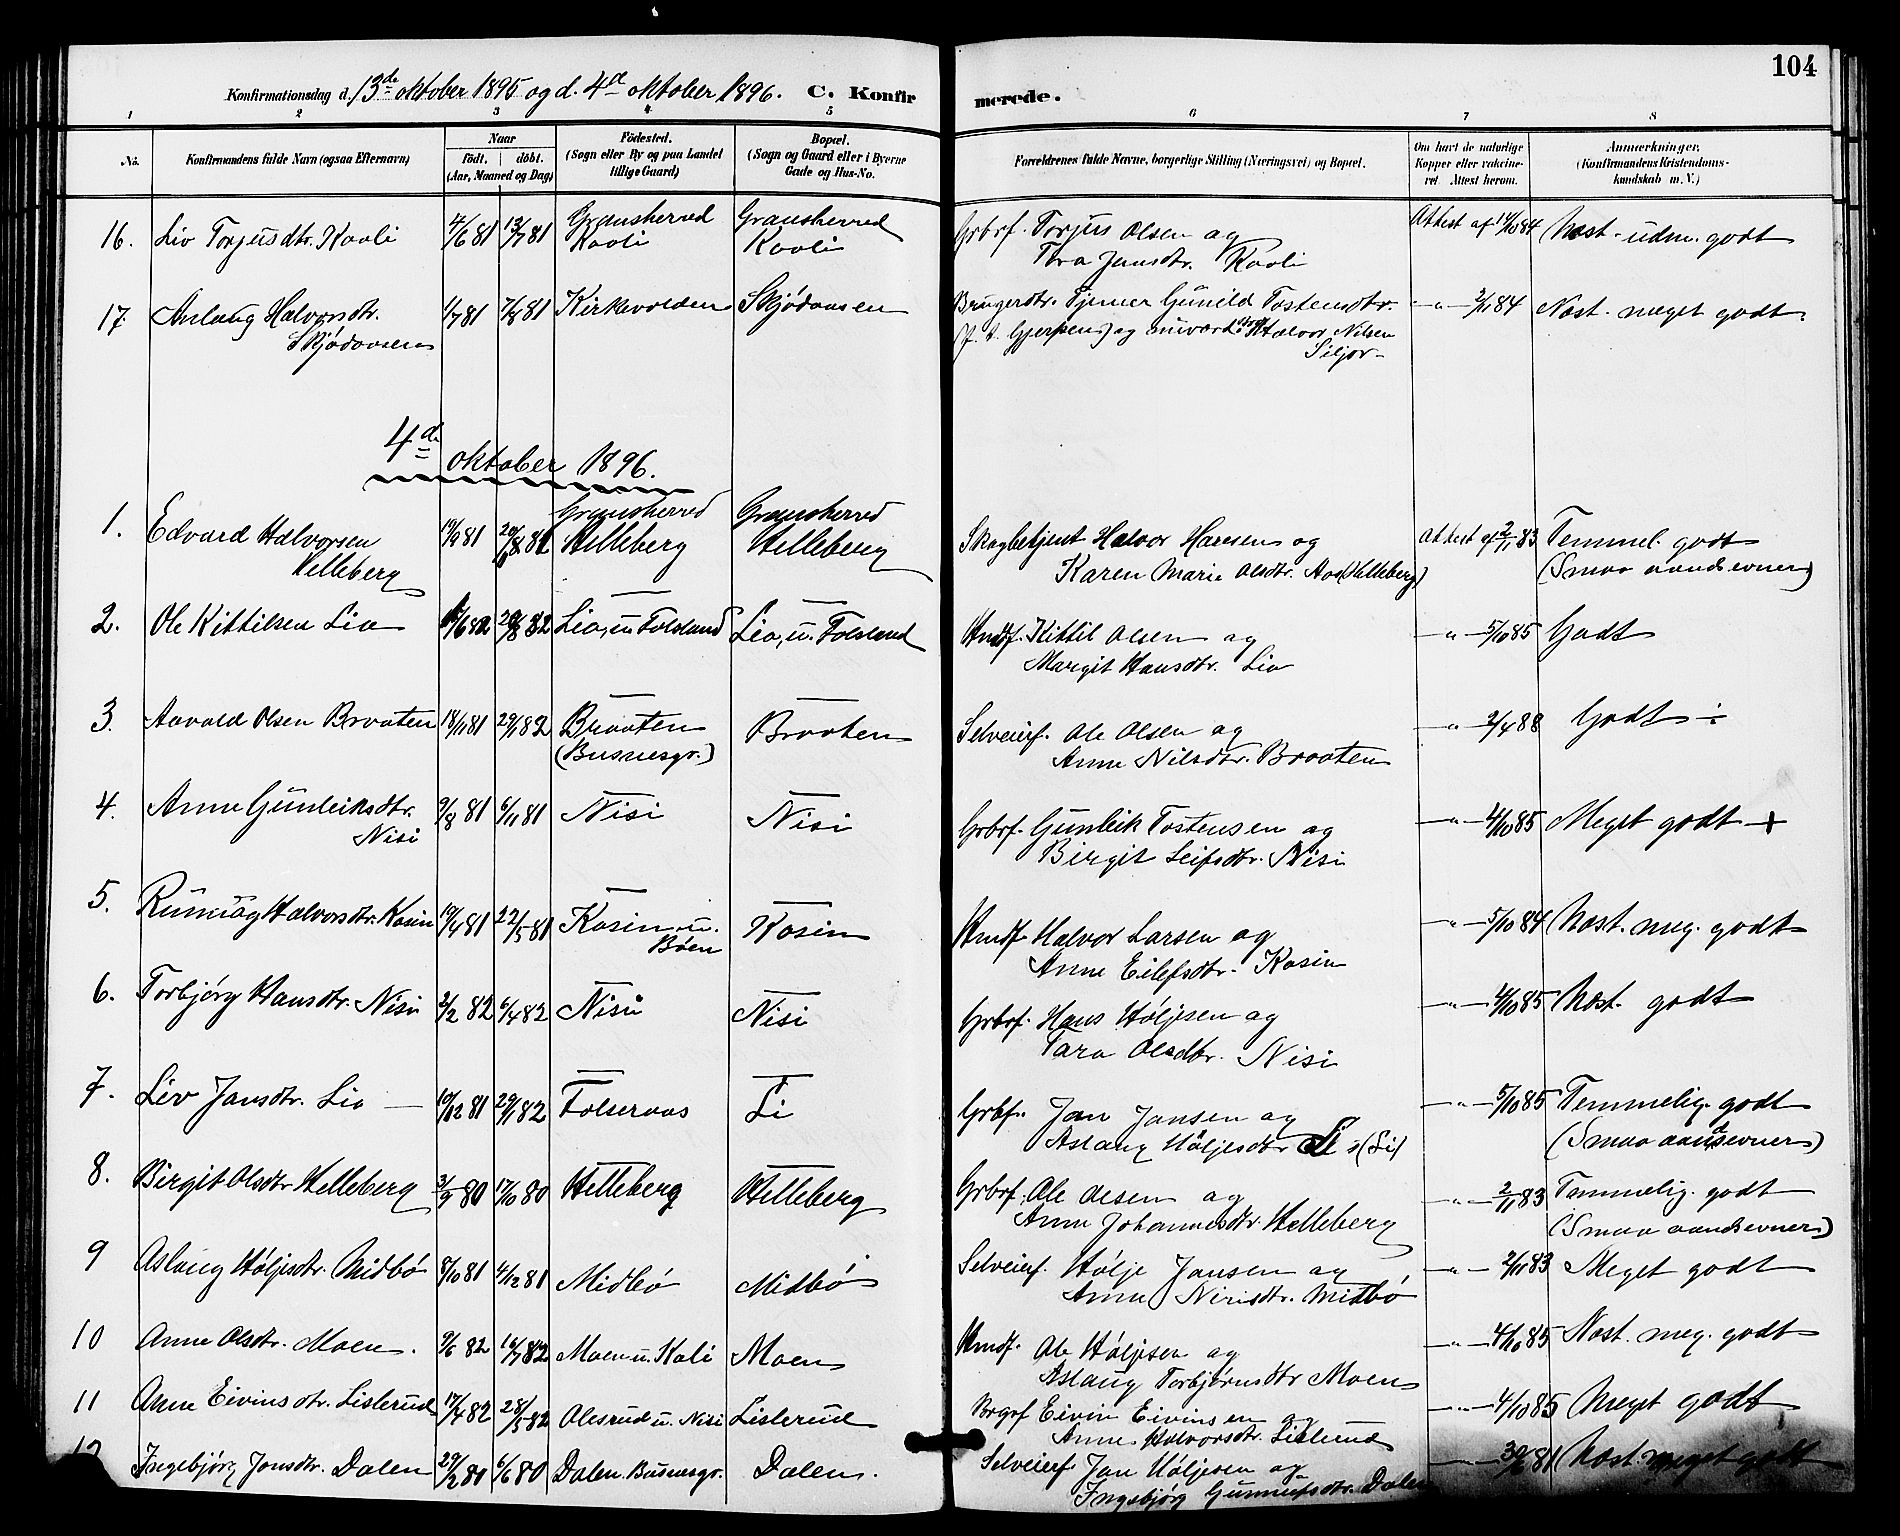 104
Konfirmationsdag d. 13de oktober 1895 og d. 4de oktober 1896. C. Konfirmerede.
1 2 3 4 5 6 7 8
No. Konfirmandens fulde Navn (ogsaa Efternavn) Naar født. døbt. (Aar, Maaned og Dag) Fødested. (Sogn eller By og paa Landet tillige Gaard) Bopæl. (Sogn og Gaard eller i Byerne Gade og Hus-No. Forældrenes fulde Navne, borgerlige Stilling (Næringsvei) og Bopæl. Om havt de naturlige Kopper eller vakcineret. Attest herom. Anmærkninger. (Konfirmandens Kristendomskundskab m. V.)
16. Liv Torjusdtr. Kaali 4/6 81 13/7 81 Gransherred Kaali Gransherred Kaali Grbrf. Torjus Olsen og Attest af 14/10 84 Næst. udm. godt
Tora Jansdtr. Kaali
17. Anlaug Halvorsdtr. 1/7 81 7/8 81 Kirkevolden Skjødaasen Brugerdtr. Tjener Gunild Tostensdtr. -"- 3/11 84 Næst. meget godt.
Skjødaasen (p. t. Gjerpens) og Halvor Nilsen
Siljor
4de oktober 1896.
1. Edvard Halvorsen Helleberg 19/9 81 Gransherred Helleberg Gransherred Helleberg Skogbetjent Halvor Hansen og Attest af 2/11 83 Temmel. godt
Karen Marie Olsdtr. Aas (Helleberg) (Smaa aandsevner)
2. Ole Kittilsen Lia 20/8 82 Lia, u. Folsland Lia, u. Folsland Hmdf. Kittil Olsen og -"- 5/10 85 Godt
Margit Hansdtr. Lia
3. Aavald Olsen Braaten 18/11 81 29/1 82 Braaten (Busnesgr.) Braaten Selveierf. Ole Olsen og -"- 2/4 88 Godt ÷
Anne Nilsdtr. Braaten
4. Anne Gunleiksdtr. Nisi 9/8 81 6/11 81 Nisi Nisi Grbrf. Gunleik Tostensen og -"- 4/10 85 Meget godt +
Birgit Leifsdtr. Nisi
5. Halvorsdtr. Kasin 19/4 81 22/5 81 Kasin u. Bøen Kasin Hmdf. Halvor Larsen og -"- 5/10 84 Næst. meg. godt
Anne Eilefsdtr. Kasin
6. Torbjørg Hansdtr. Nisi 2/2 82 6/4 82 Nisi Nisi Grbrf. Hans Høljesen og -"- 4/10 85 Næst. godt
Tara Olsdtr. Nisi
7. Liv Jansdtr. Lia 10/12 81 29/1 82 Folseraas Li Grbf. Jan Jansen og -"- 5/10 85 Temmelig. godt
Aslaug Høljesdtr Li (Li) (Smaa aandsevner)
8. Birgit Olsdtr Helleberg 3/9 80 17/10 80 Helleberg Helleberg Grbrf. Ole Olsen og -"- 2/11 83 Temmelig. godt
Anne Johannesdtr. Helleberg (Smaa aandsevner)
9 Aslaug Høljesdtr. Midbø 8/10 81 4/12 81 Midbø Midbø Selveierf. Hølje Jansen og -"- 2/11 83 Meget godt
Anne Nirisdtr. Midbø
10 Anne Olsdtr. Moen. 9/6 82 16/7 82 Moen u. Kali Moen Hmdf. Ole Høljesen og -"- 4/10 85 Næst. meg. godt
Aslaug Torbjørnsdtr Moen
11 Anne Eivinsdtr. Lislerud 17/4 82 28/5 82 Olesrud u. Nisi Lislerud Brgrf Eivin Eivinsen og -"- 4/10 85 Meget godt
Anne Halvorsdtr. Lislerud
12 Ingebjørg Jonsdtr. Dalen 29/2 80 6/6 80 Dalen. Busnesgr. Dalen. Selveierf Jon Høljesen og -"- Næst. meget godt
Ingebjørg Gunnulfsdtr. Dalen